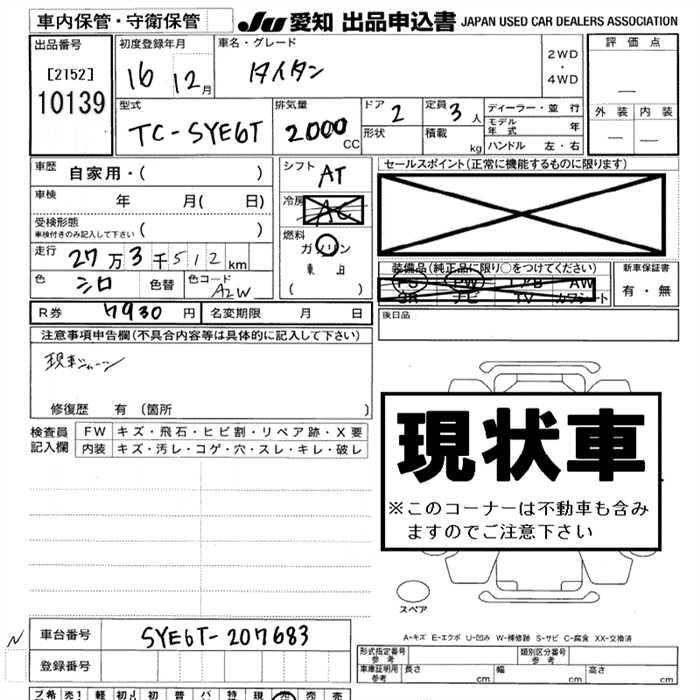 車内保管・守衛保管
JU 愛知 出品申込書 JAPAN USED CAR DEALERS ASSOCIATION
出品番号 初度登録年月 車名・グレード 2WD・4WD 評価点
[2152] 16 12月 タイタン
10139
型式 排気量 ドア 2 定員 3人 ディーラー・並行 外装 内装
TC-SYE6T 2000CC 形状 積載 kg モデル年式 年
ハンドル 左・右
車歴 自家用・( ) シフト AT セールスポイント(正常に機能するものに限ります)
車検 年 月( 日) 冷房 AC
受検形態 ( )
車検付きのみ記入して下さい
燃料 ガソリン
走行 27万3千512km
色 シロ 色替 色コード A2W
装備品(純正品に限り○をつけてください) 新車保証書
PS PW AW 有・無
SR ナビ TV カワシート
R券 7930円 名変期限 月 日 後日品
注意事項申告欄(不具合内容等は具体的に記入して下さい)
修復歴 有 (箇所 )
検査員記入欄 FW キズ・飛石・ヒビ割・リペア跡・X要
内装 キズ・汚レ・コゲ・穴・スレ・キレ・破レ
現状車
※このコーナーは不動車も含み
ますのでご注意下さい
スペア
A-キズ E-エクボ U-凹み W-補修跡 S-サビ C-腐食 XX-交換済
N 車台番号 SYE6T-207683
登録番号
形式指定番号 参考 類別区分番号 参考
車庫証明用 参考 長さ cm 幅 cm 高さ cm